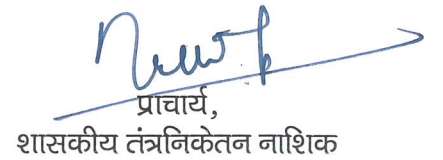 प्राचार्य,
शासकीय तंत्रनिकेतन नाशिक